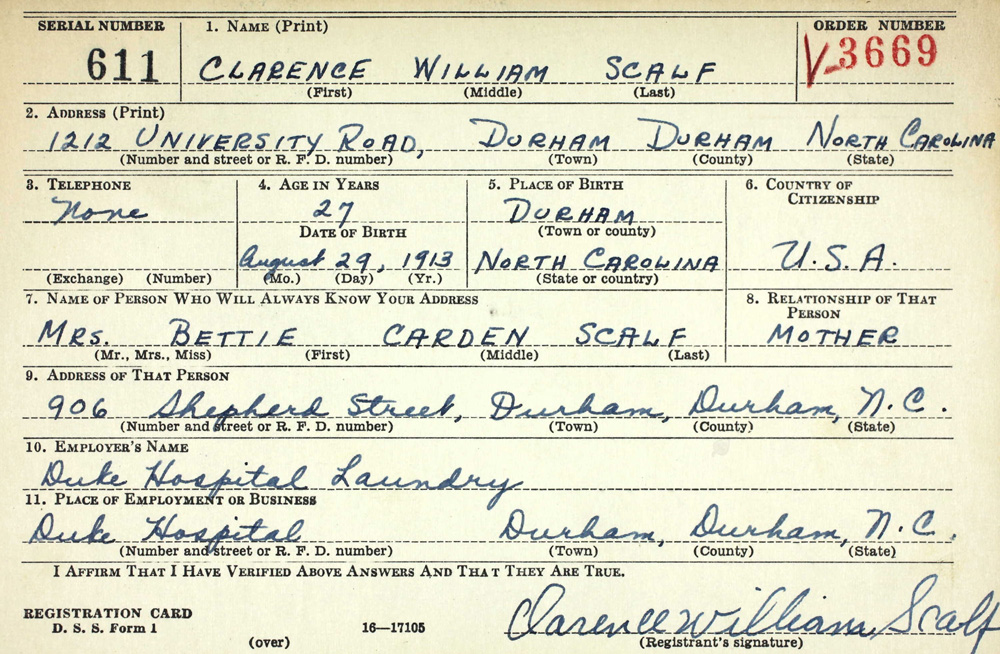 SERIAL NUMBER 1. NAME (Print) ORDER NUMBER
611 CLARENCE WILLIAM SCALF V3669
(First) (Middle) (Last)
2. ADDRESS (Print)
1212 UNIVERSITY ROAD, DURHAM DURHAM NORTH CAROLINA
(Number and street or R. F. D. number) (Town) (County) (State)
3. TELEPHONE 4. AGE IN YEARS 5. PLACE OF BIRTH 6. COUNTRY OF
CITIZENSHIP
None 27 DURHAM
DATE OF BIRTH (Town or county)
August 29, 1913 NORTH CAROLINA U.S.A.
(Exchange) (Number) (Mo.) (Day) (Yr.) (State or country)
7. NAME OF PERSON WHO WILL ALWAYS KNOW YOUR ADDRESS 8. RELATIONSHIP OF THAT
PERSON
MRS. BETTIE CARDEN SCALF MOTHER
(Mr., Mrs., Miss) (First) (Middle) (Last)
9. ADDRESS OF THAT PERSON
906 Shepherd Street, Durham, Durham, N.C.
(Number and street or R. F. D. number) (Town) (County) (State)
10. EMPLOYER'S NAME
Duke Hospital Laundry
11. PLACE OF EMPLOYMENT OR BUSINESS
Duke Hospital Durham, Durham, N.C.
(Number and street or R. F. D. number) (Town) (County) (State)
I AFFIRM THAT I HAVE VERIFIED ABOVE ANSWERS AND THAT THEY ARE TRUE.
REGISTRATION CARD
D. S. S. Form 1 16—17105 Clarence William Scalf
(over) (Registrant's signature)